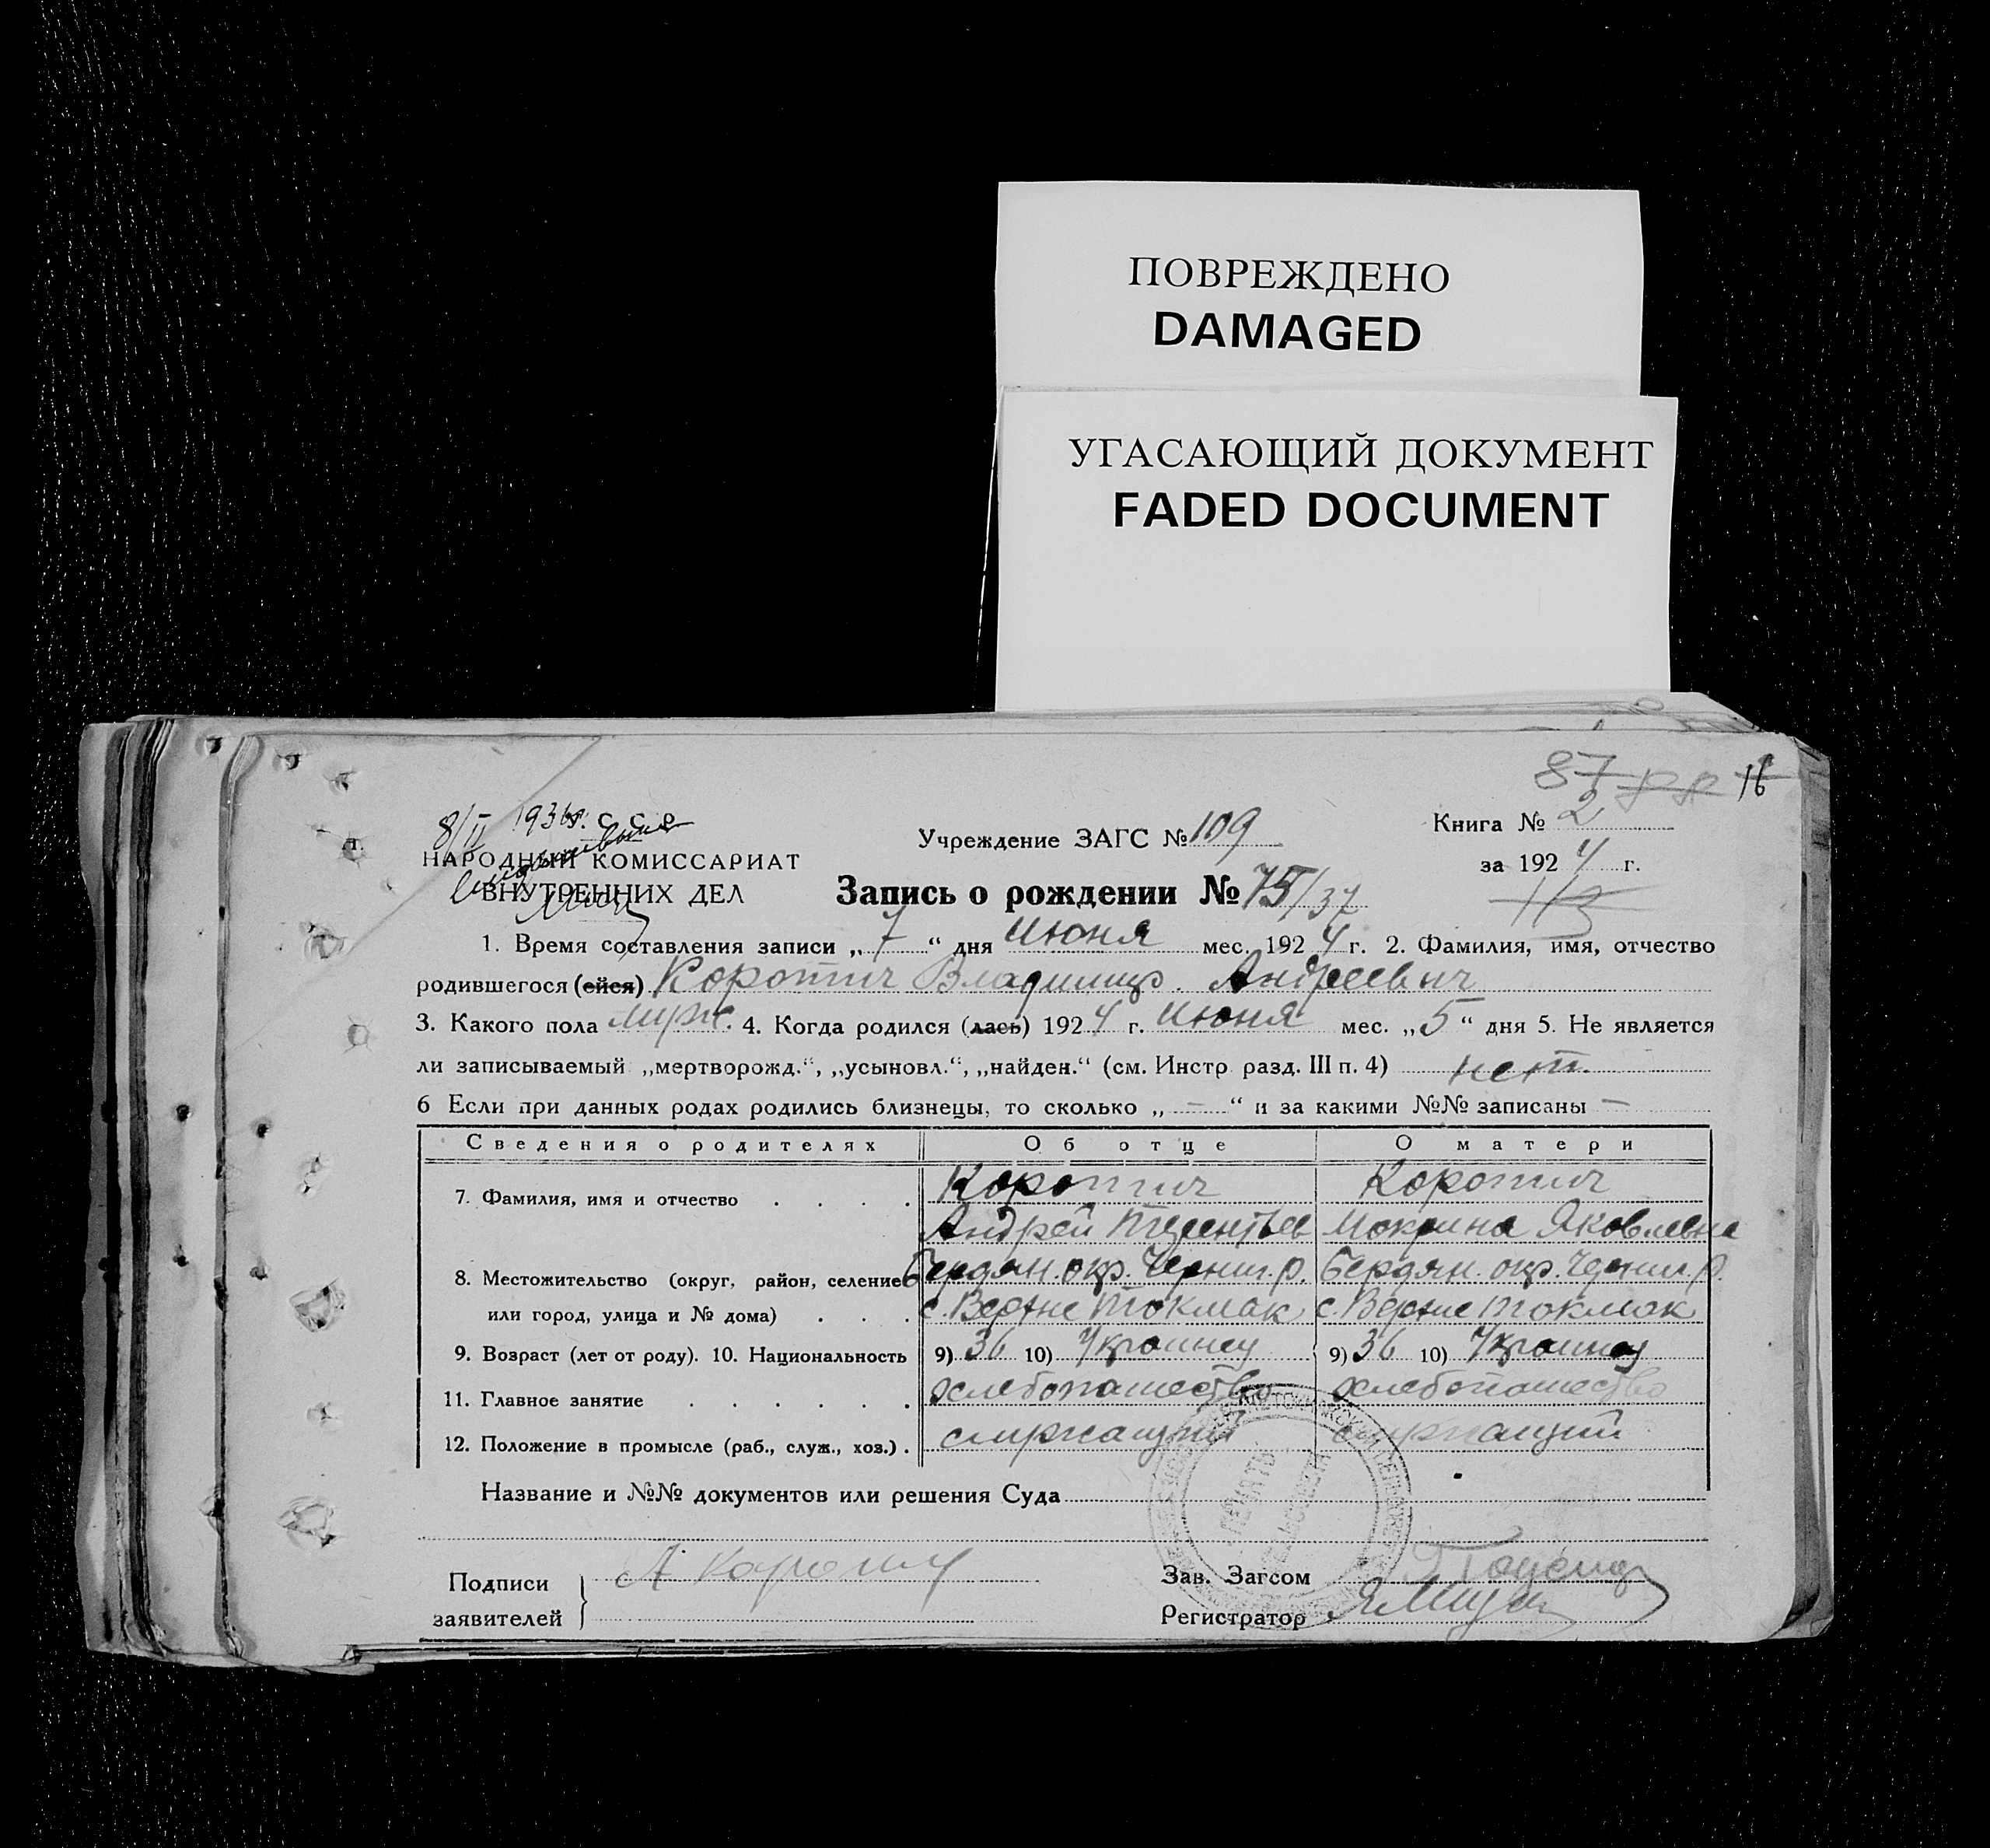 ПОВРЕЖДЕНО
DAMAGED
УГАСАЮЩИЙ ДОКУМЕНТ
FADED DOCUMENT
87
16
8/II 1936г. С. С. Р.
НАРОДНЫЙ КОМИССАРИАТ
ВНУТРЕННИХ ДЕЛ
Учреждение ЗАГС № 109
Книга № 2
за 1924 г.
Запись о рождении № 75/37
113
1. Время составления записи „7“ дня Июня мес. 1924 г. 2. Фамилия, имя, отчество
родившегося (ейся) Коротич Владимир. Андреевич
3. Какого пола муж. 4. Когда родился (лась) 1924 г. Июня мес. „5“ дня 5. Не является
ли записываемый „мертворожд.“, „усыновл.“, „найден.“ (см. Инстр. разд. III п. 4) нет.
6 Если при данных родах родились близнецы, то сколько „ — “ и за какими №№ записаны —
Сведения о родителях Об отце О матери
7. Фамилия, имя и отчество . . . . Коротич Коротич
Андрей Терентьев Мокрина Яковлевна
8. Местожительство (округ, район, селение Бердян. окр. Черниг. р. Бердян. окр. Черниг. р.
или город, улица и № дома) . . . с. Верхне Токмак с. Верхне Токмак
9. Возраст (лет от роду). 10. Национальность 9) 36 10) Украинец 9) 36 10)
11. Главное занятие . . . . . . хлебопашество хлебопашество
12. Положение в промысле (раб., служ., хоз.) . служащий служащий
Название и №№ документов или решения Суда
ПЕЧАТЬ
Подписи
заявителей
А Коротич
Зав. Загсом
Регистратор